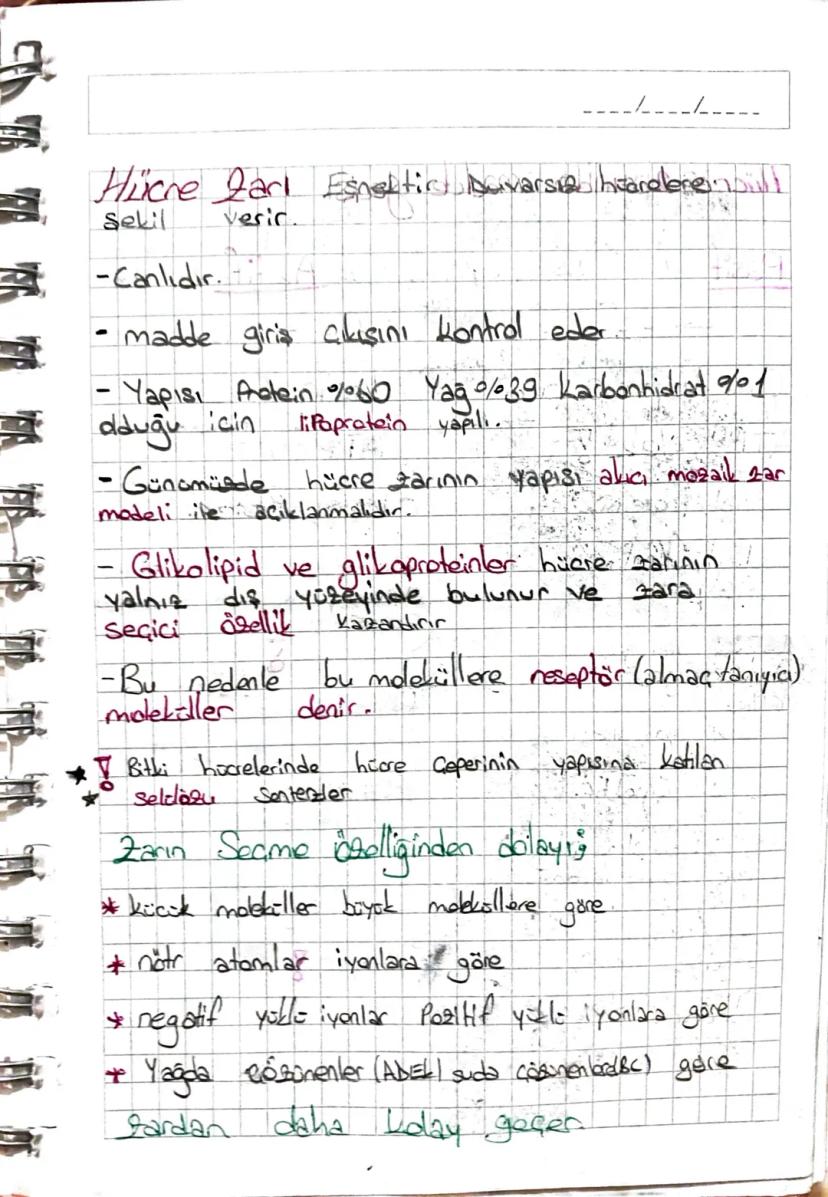 ----/----/-----
Hücre Zarı Esnektir. Duvarsız hücrelere
şekil verir.
-Canlıdır.
- madde giriş çıkışını kontrol eder.
- Yapısı Protein %60 Yağ %39 Karbonhidrat %1
olduğu için lipoprotein yapılı.
- Günümüzde hücre zarının yapısı akıcı mozaik zar
modeli ile açıklanmalıdır.
- Glikolipid ve glikoproteinler hücre zarının
yalnız dış yüzeyinde bulunur ve zara
seçici özellik kazandırır
-Bu nedenle bu moleküllere reseptör (almaç tanıyıcı)
moleküller denir.
! Bitki hücrelerinde hücre çeperinin yapısına katılan
selülozu sentezler
Zarın Seçme özelliğinden dolayı;
* küçük moleküller büyük moleküllere göre
* nötr atomlar iyonlara göre
* negatif yüklü iyonlar Pozitif yüklü iyonlara göre
* Yağda çözünenler (ADEK) suda çözünenlere (BC) göre
zardan daha kolay geçer